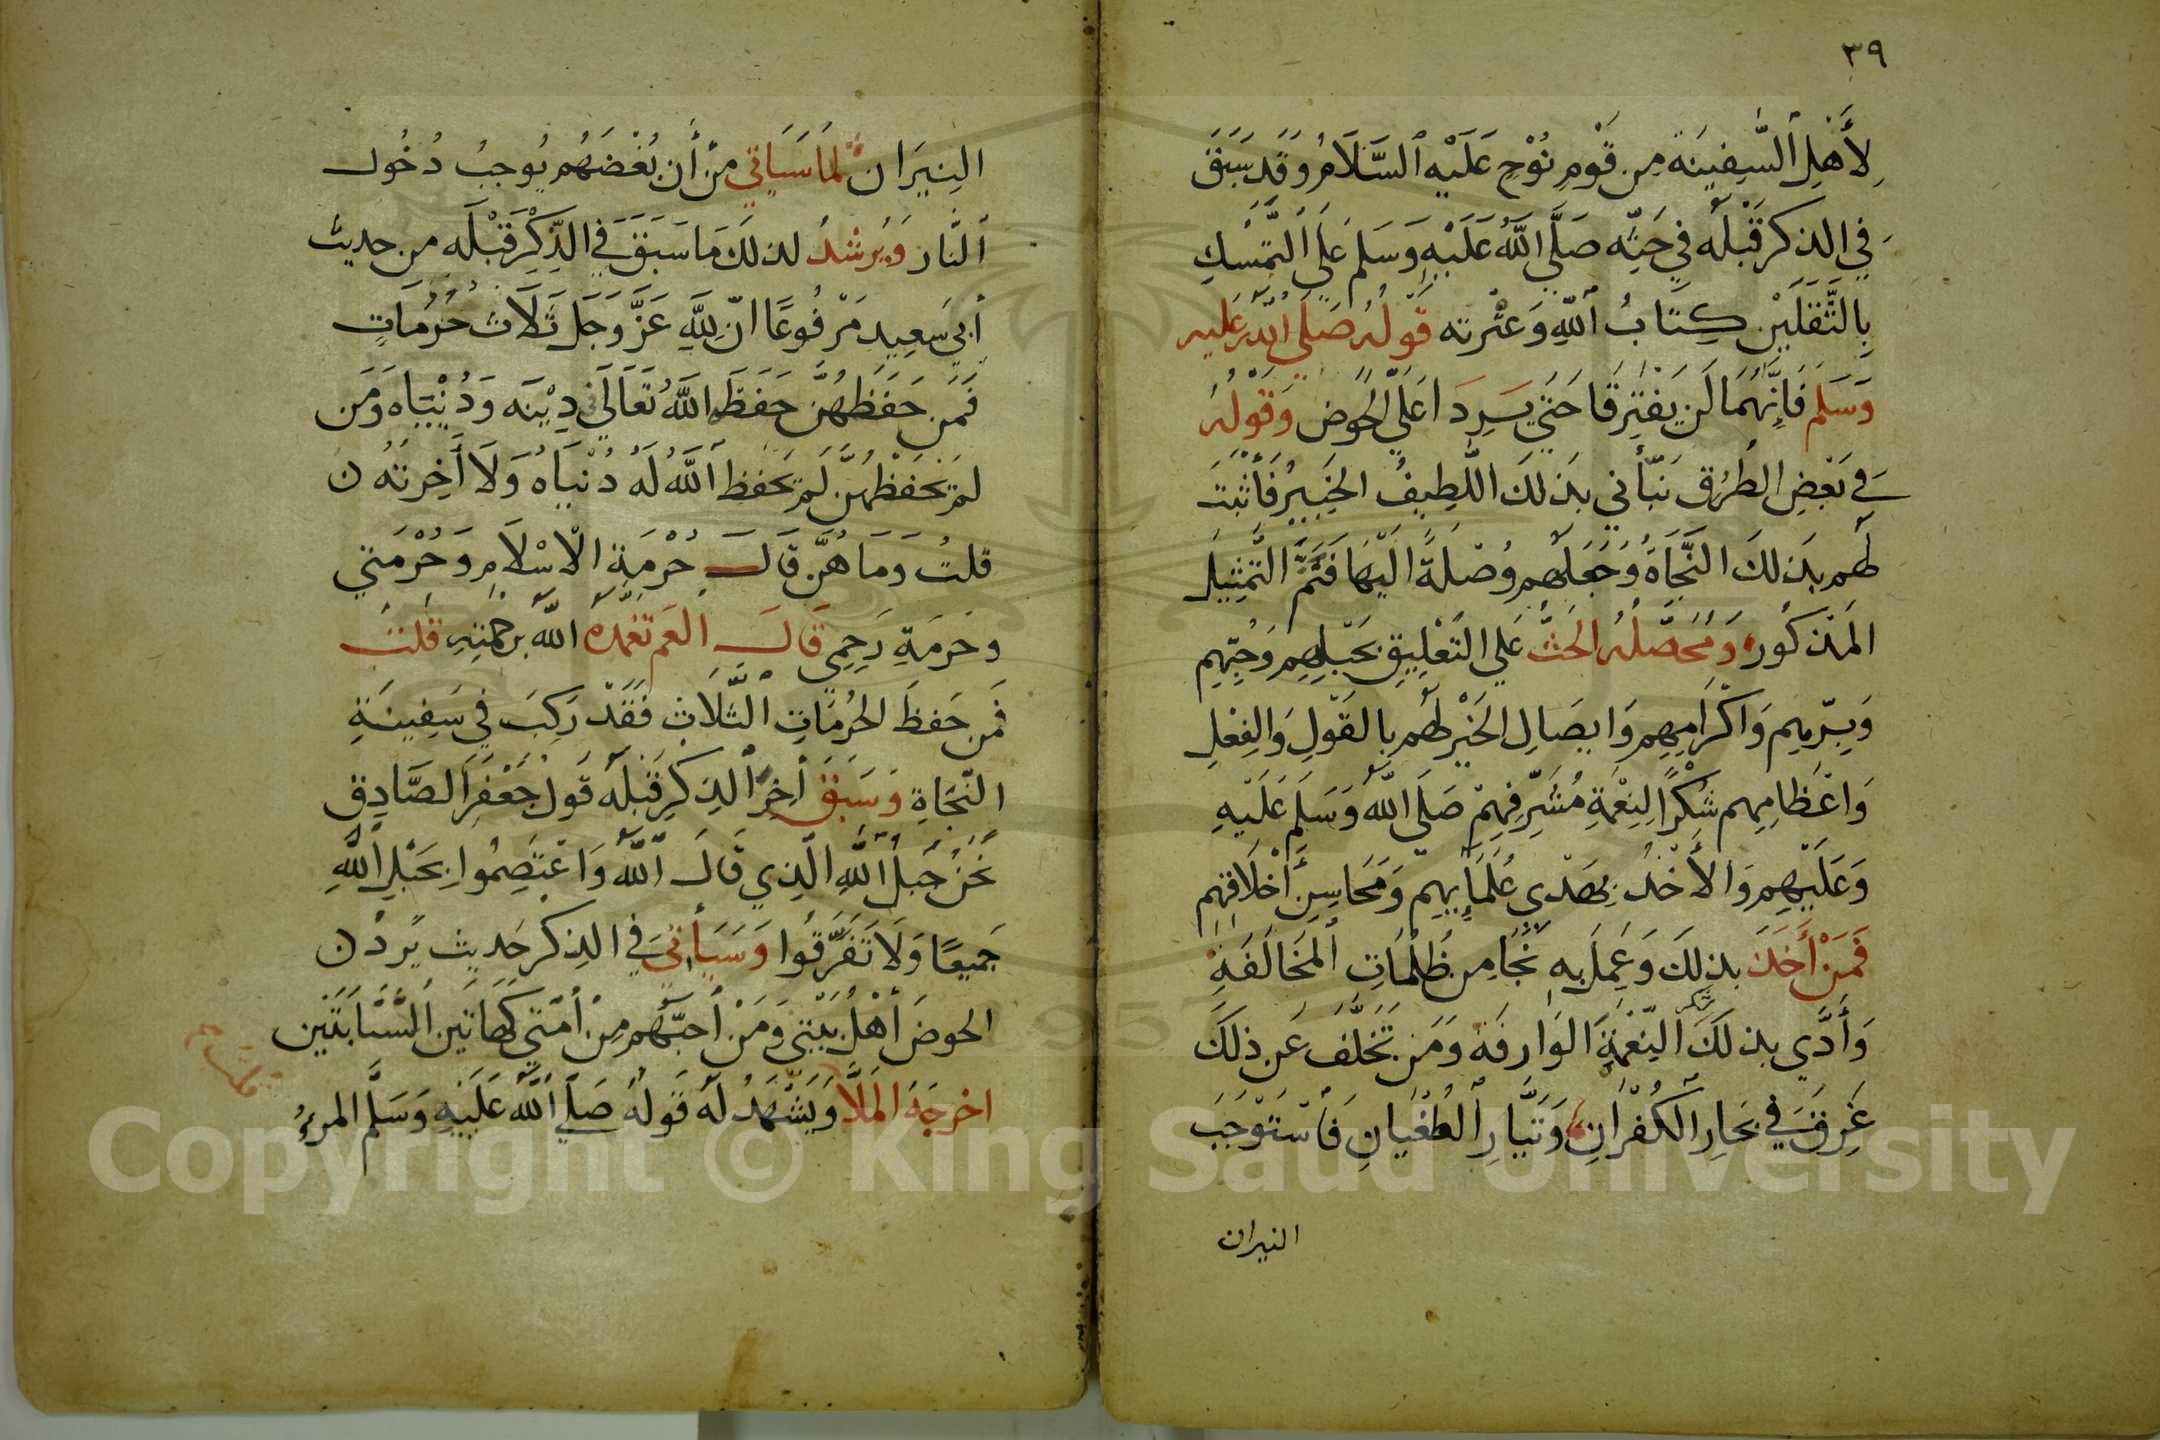 ٣٩
لِأَهْلِ السَّفِينَة مِن قَوْمِ نُوْحٍ عَلَيْهِ السَّلَامُ وَقَدْ سَبَقَ
فِي الذكر قَبْلَه فِي حَثِّه صَلَّى اللَّهُ عَلَيْهِ وَسَلم عَلَى التَّمَسُّكِ
بِالثَّقَلَيْنِ كِتَابُ اللَّهِ وَعِتْرته قَوْلُهُ صَلَى اللَّهُ عَلَيه
وَسَلَم فَإِنَّهُمَا لَن يَفْتَرِقَا حَتَى يَرِدَا عَلَيَّ الحَوض وَقَوْلُهُ
فِي بَعْضِ الطُرُق نَبَّأَني بذَلكَ اللَّطِيفُ الخَبِيرُ فَأَثْبَتَ
لَهم بذَلكَ النَّجَاةَ وَجَعَلَهم وُصْلَةً الَيْهَا فَتَمَّ التَّمْثِيل
المَذكُور وَمُحَصَّلُه الحَثُّ عَلي التَعْلِيقِ بحَبْلِهِم وَحُبِّهِم
وَبِرِّهِم وَاكْرَامِهِم وَايصَالِ الخَيْر لَهُم بِالقَوْلِ وَالفِعْلِ
وَاعْظَامِهِم شُكْرًا لِنِعْمَةِ مُشَرِّفِهِمْ صَلَى اللَّهُ وَسَلَم عَلَيْهِ
وَعَلَيْهِم وَالأَخْذ بهَدْي عُلَمَايِهِم وَمَحَاسِنِ أَخْلَاقِهِم
فَمَنْ أَخَذَ بذلِكَ وَعَمِلَ بِهِ نَجَا مِن ظُلُمَاتِ المخَالَفَةِ
وَأَدَّي بذلَكَ شكر النِّعْمَةِ الوَارِفَة وَمَن تَخَلَّفَ عَن ذلكَ
غَرِقَ فِي بحَارِ الكُفْرَانِ وَتَيَّارِ الطُغْيَانِ فَاسْتَوْجَبَ
النيران
النِيرَان لمَا سَيَاتي مِنْ أَن بُغْضَهُم يُوجبُ دُخُول
النَّار وَيُرْشدُ لذلكَ مَا سَبَقَ فِي الذِكْرِ قَبْلَه من حديث
أَبِي سَعِيد مَرْفُوعًا انّ لِلَّهِ عَزَّ وَجَل ثَلَاثَ حُرُمَاتٍ
فَمَن حَفَظَهُنَّ حَفَظَ اللَّهُ تَعَالَى دِيْنَه وَدُنْيَاه وَمَن
لَم يَحْفَظْهُنَّ لَم يَحْفَظ اللَّهُ لَهُ دُنْيَاهُ وَلَا أَخِرتَهُ
قلتُ وَمَا هُنَّ قَالَ حُرْمَة الْاسْلَام وَحُرْمَتي
وحرمَة رَحِمِي قَالَ العم تغمده اللَّه برحمتِه قلتُ
فَمن حَفظَ الحُرُمَاتِ الثَّلَاثِ فَقَدْ رَكِبَ فِي سَفِينَةِ
النَّجَاةِ وَسَبَقَ أخِرَ الذِكرِ قَبلَه قَولُ جَعْفَرٍ الصَّادِق
نَحْنُ حَبلُ اللَّهِ الَّذِي قَالَ اللَّهُ وَاعْتَصِمُوا بحَبْلِ اللَّهِ
جَمِيعًا وَلَا تَفَرَّقُوا وَسَيَأتِي فِي الذكر حَدِيث يَردُ
الحوضَ أهْلُ بَيْتي وَمَنْ أحبَّهُم مِنْ أمَّتي كَهَاتَينِ السَّبَّابَتَيْن
اخرجَهُ المَلَّا وَيَشْهَدُ لَه قَولُهُ صَلى اللَّهُ عَلَيْهِ وَسَلَّم المرءُ